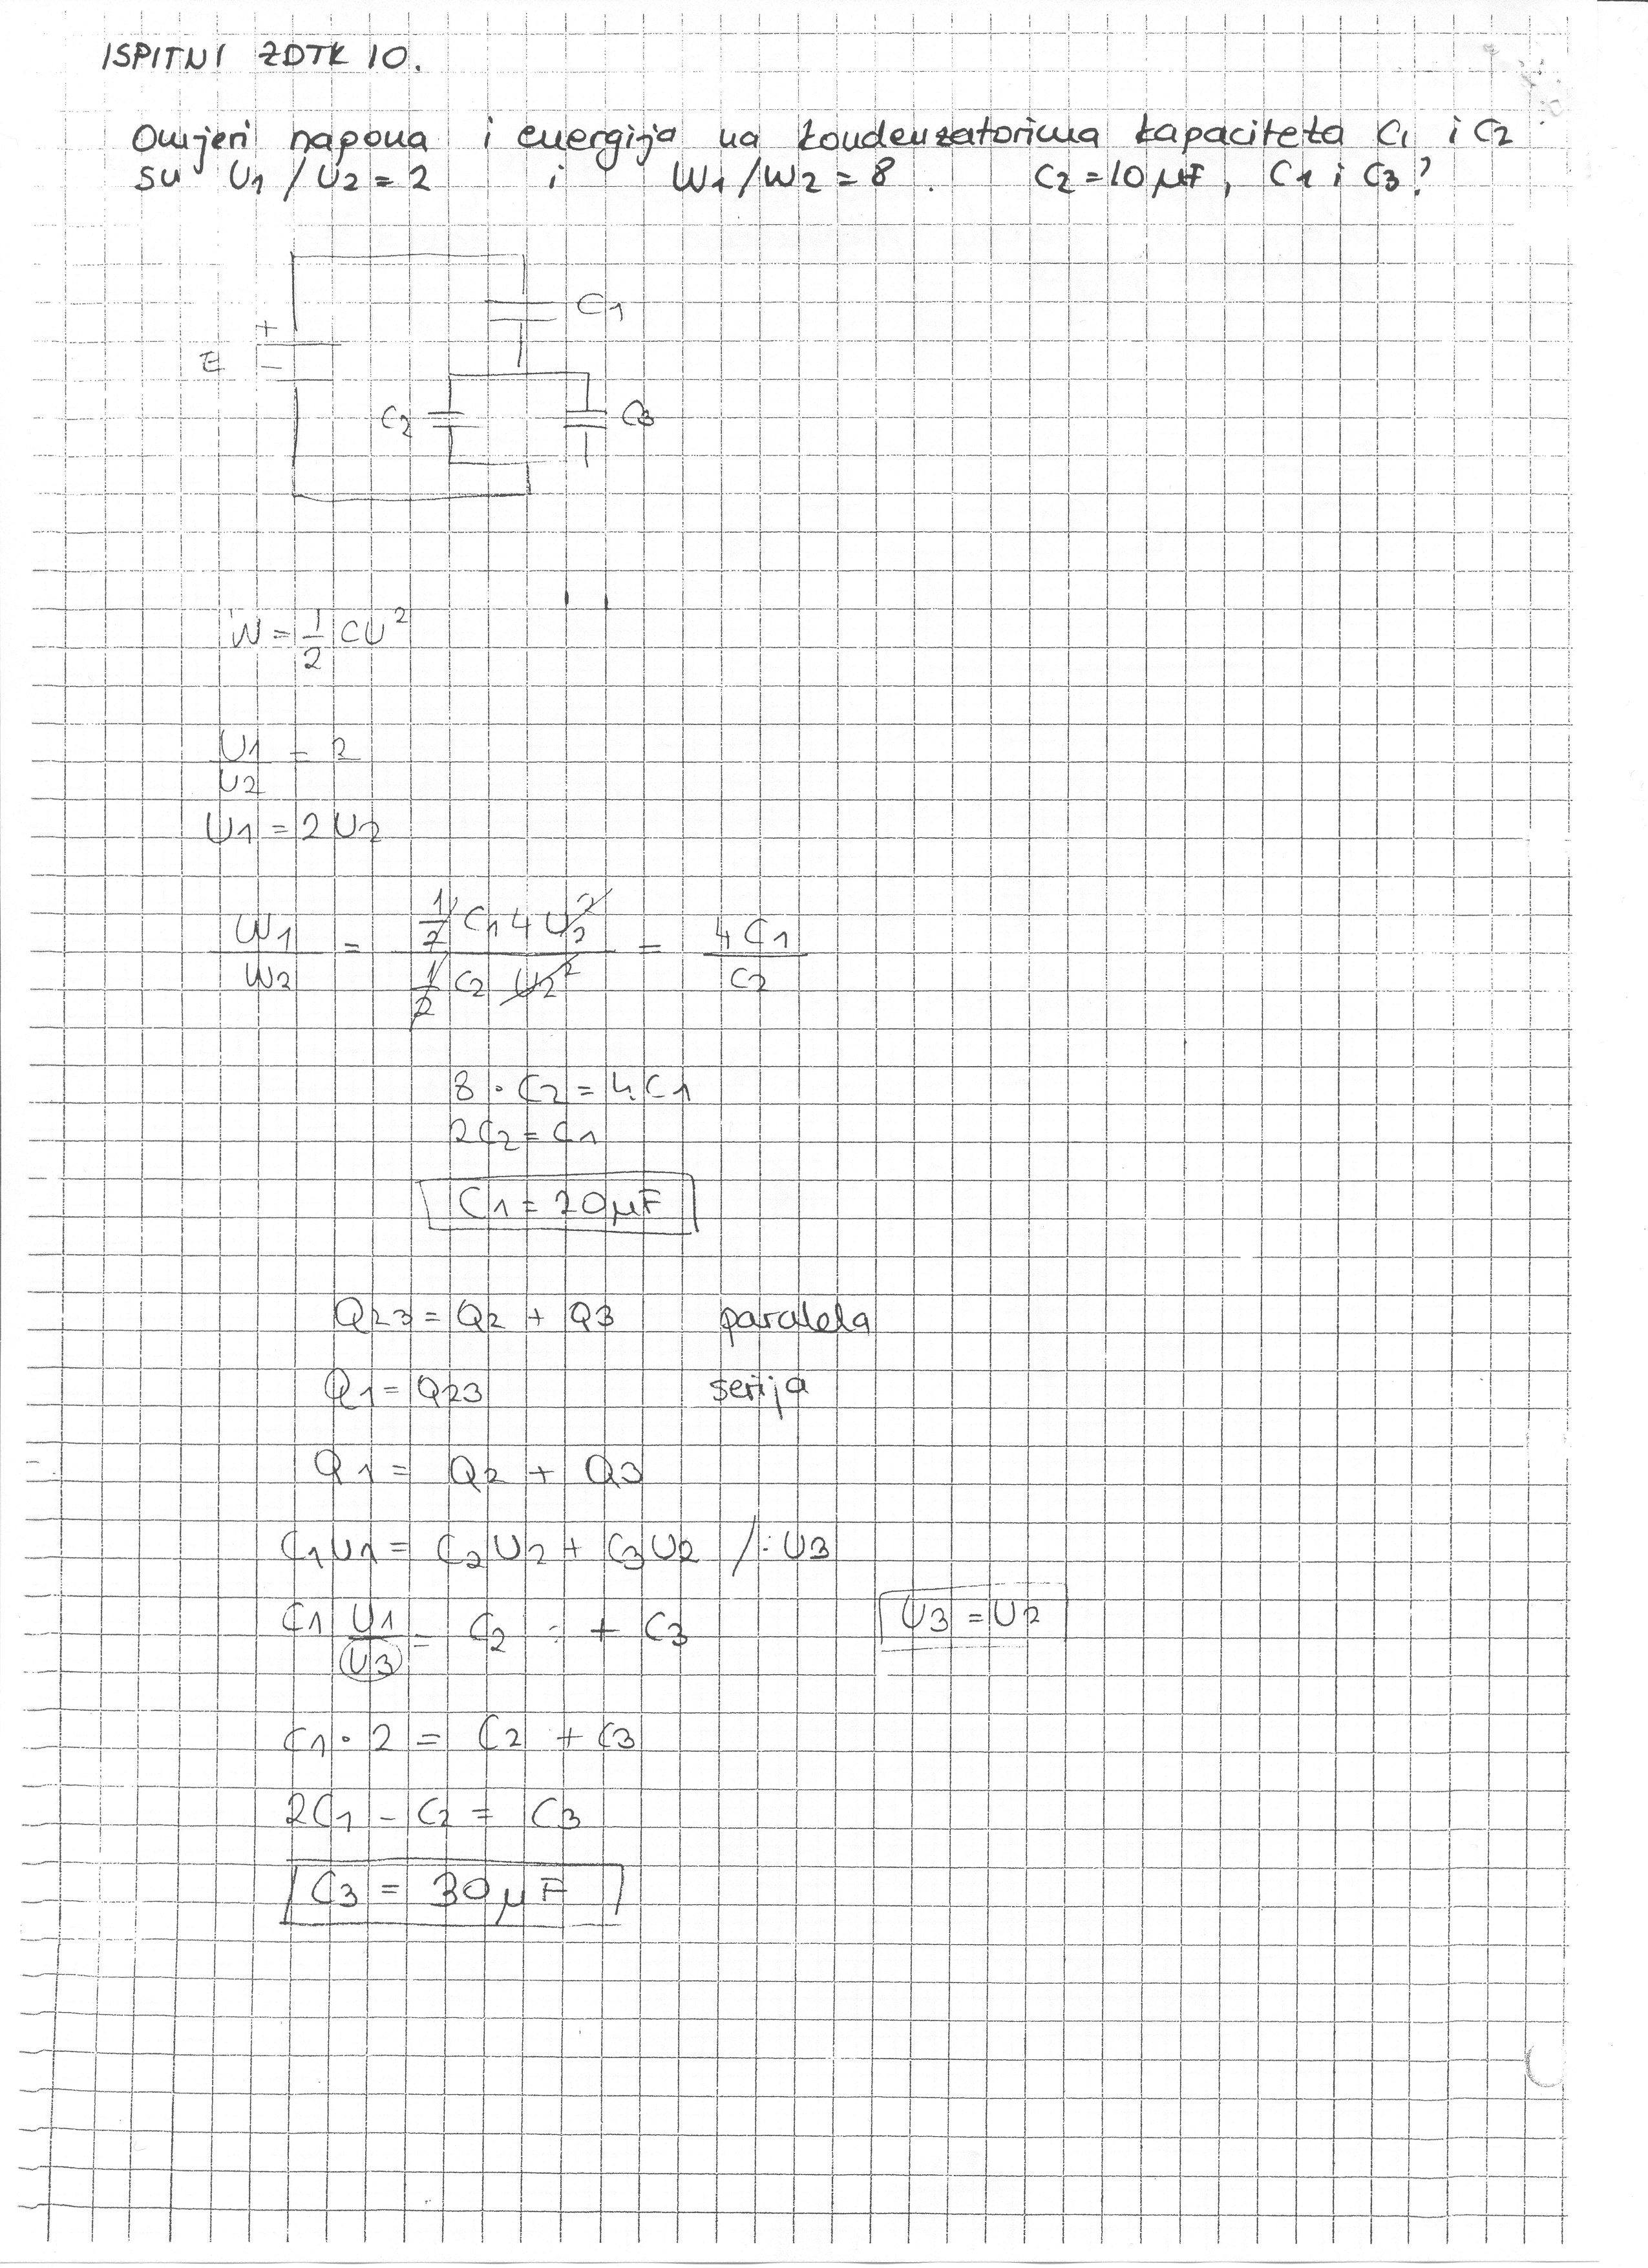 ISPITNI ZDTK 10.
Omjeri napona i energija na kondenzatorima kapaciteta C1 i C2
su U1/U2=2 i W1/W2=8. C2=10μF, C1 i C3?
C1
+
E
-
C2
C3
W=1/2 CU²
U1/U2 = 2
U1=2U2
W1/W2 = 1/2 C1 4 U2² / 1/2 C2 U2² = 4C1/C2
8·C2=4C1
2C2=C1
C1=20μF
Q23=Q2+Q3 paralela
Q1=Q23 serija
Q1=Q2+Q3
C1U1=C2U2+C3U2 /:U3
C1 U1/U3 = C2 + C3 U3=U2
C1·2=C2+C3
2C1-C2=C3
C3=30μF